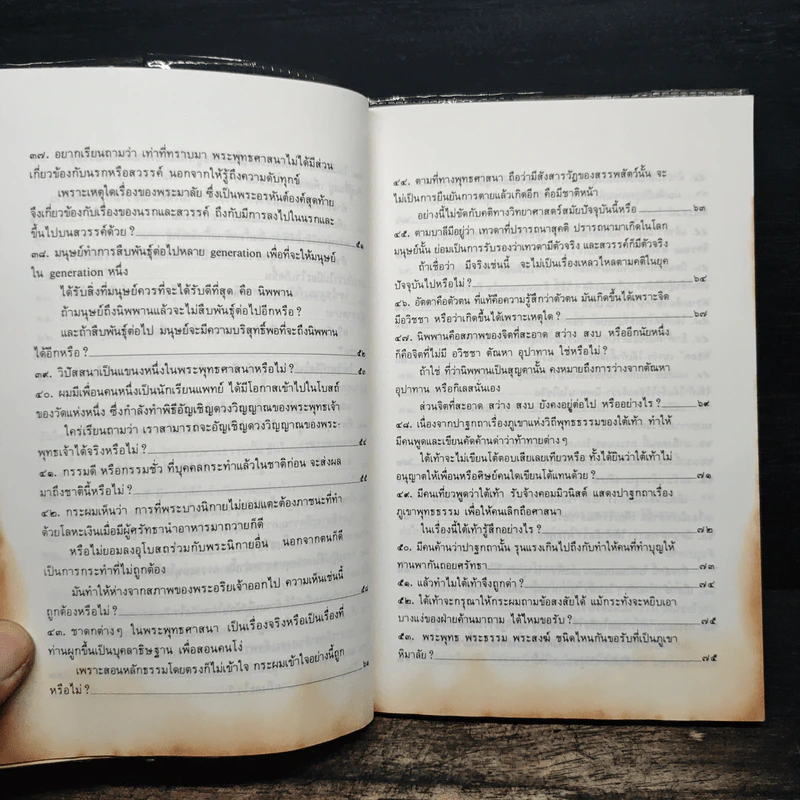 ๓๗. อยากเรียนถามว่า เท่าที่ทราบมา พระพุทธศาสนาไม่ได้มีส่วน
เกี่ยวข้องกับนรกหรือสวรรค์ นอกจากให้รู้ถึงความดับทุกข์
เพราะเหตุใดเรื่องของพระมาลัย ซึ่งเป็นพระอรหันต์องค์สุดท้าย
จึงเกี่ยวข้องกับเรื่องของนรกและสวรรค์ ถึงกับมีการลงไปในนรกและ
ขึ้นไปบนสวรรค์ด้วย ? ๕๑
๓๘. มนุษย์ทำการสืบพันธุ์ต่อไปหลาย generation เพื่อที่จะให้มนุษย์
ใน generation หนึ่ง
ได้รับสิ่งที่มนุษย์ควรที่จะได้รับดีที่สุด คือ นิพพาน
ถ้ามนุษย์ถึงนิพพานแล้วจะไม่สืบพันธุ์ต่อไปอีกหรือ ?
และถ้าสืบพันธุ์ต่อไป มนุษย์จะมีความบริสุทธิ์พอที่จะถึงนิพพาน
ได้อีกหรือ ? ๕๒
๓๙. วิปัสสนาเป็นแขนงหนึ่งในพระพุทธศาสนาหรือไม่ ? ๕๓
๔๐. ผมมีเพื่อนคนหนึ่งเป็นนักเรียนแพทย์ ได้มีโอกาสเข้าไปในโบสถ์
ของวัดแห่งหนึ่ง ซึ่งกำลังทำพิธีอัญเชิญดวงวิญญาณของพระพุทธเจ้า
ใคร่เรียนถามว่า เราสามารถจะอัญเชิญดวงวิญญาณของพระ-
พุทธเจ้าได้จริงหรือไม่ ? ๕๔
๔๑. กรรมดี หรือกรรมชั่ว ที่บุคคลกระทำแล้วในชาติก่อน จะส่งผล
มาถึงชาตินี้หรือไม่ ? ๕๕
๔๒. กระผมเห็นว่า การที่พระบางนิกายไม่ยอมแตะต้องภาชนะที่ทำ
ด้วยโลหะเงินเมื่อมีผู้ศรัทธานำอาหารมาถวายก็ดี
หรือไม่ยอมลงอุโบสถร่วมกับพระนิกายอื่น นอกจากตนก็ดี
เป็นการกระทำที่ไม่ถูกต้อง
มันทำให้ห่างจากสภาพของพระอริยเจ้าออกไป ความเห็นเช่นนี้
ถูกต้องหรือไม่ ? ๕๘
๔๓. ชาดกต่างๆ ในพระพุทธศาสนา เป็นเรื่องจริงหรือเป็นเรื่องที่
ท่านผูกขึ้นเป็นบุคลาธิษฐาน เพื่อสอนคนโง่
เพราะสอนหลักธรรมโดยตรงก็ไม่เข้าใจ กระผมเข้าใจอย่างนี้ถูก
หรือไม่ ? ๖๑
๔๔. ตามที่ทางพุทธศาสนา ถือว่ามีสังสารวัฏของสรรพสัตว์นั้น จะ
ไม่เป็นการยืนยันการตายแล้วเกิดอีก คือมีชาติหน้า
อย่างนี้ไม่ขัดกับคติทางวิทยาศาสตร์สมัยปัจจุบันนี้หรือ ๖๓
๔๕. ตามบาลีมีอยู่ว่า เทวดาที่ปรารถนาสุคติ ปรารถนามาเกิดในโลก
มนุษย์นั้น ย่อมเป็นการรับรองว่าเทวดามีตัวจริง และสวรรค์ก็มีตัวจริง
ถ้าเชื่อว่า มีจริงเช่นนี้ จะไม่เป็นเรื่องเหลวไหลตามคติในยุค
ปัจจุบันไปหรือไม่ ? ๖๔
๔๖. อัตตาคือตัวตน ที่แท้คือความรู้สึกว่าตัวตน มันเกิดขึ้นได้เพราะจิต
มีอวิชชา หรือว่าเกิดขึ้นได้เพราะเหตุใด ? ๖๗
๔๗. นิพพานคือสภาพของจิตที่สะอาด สว่าง สงบ หรืออีกนัยหนึ่ง
ก็คือจิตที่ไม่มี อวิชชา ตัณหา อุปาทาน ใช่หรือไม่ ?
ถ้าใช่ ที่ว่านิพพานเป็นสุญตานั้น คงหมายถึงการว่างจากตัณหา
อุปาทาน หรือกิเลสนั่นเอง
ส่วนจิตที่สะอาด สว่าง สงบ ยังคงอยู่ต่อไป หรืออย่างไร ? ๖๙
๔๘. เนื่องจากปาฐกถาเรื่องภูเขาแห่งวิถีพุทธธรรมของใต้เท้า ทำให้
มีคนพูดและเขียนคัดค้านด่าว่าท้าทายต่างๆ
ใต้เท้าจะไม่เขียนโต้ตอบเสียเลยเทียวหรือ ทั้งได้ยินว่าใต้เท้าไม่
อนุญาตให้เพื่อนหรือศิษย์คนใดเขียนโต้แทนด้วย ? ๗๑
๔๙. มีคนเที่ยวพูดว่าใต้เท้า รับจ้างคอมมิวนิสต์ แสดงปาฐกถาเรื่อง
ภูเขาพุทธธรรม เพื่อให้คนเลิกถือศาสนา
ในเรื่องนี้ใต้เท้ารู้สึกอย่างไร ? ๗๒
๕๐. มีคนค้านว่าปาฐกถานั้น รุนแรงเกินไปถึงกับทำให้คนที่ทำบุญให้
ทานพากันถอยศรัทธา ๗๓
๕๑. แล้วทำไมใต้เท้าจึงถูกด่า ? ๗๔
๕๒. ใต้เท้าจะกรุณาให้กระผมถามข้อสงสัยได้ แม้กระทั่งจะหยิบเอา
บางแง่ของฝ่ายค้านมาถาม ได้ไหมขอรับ ? ๗๕
๕๓. พระพุทธ พระธรรม พระสงฆ์ ชนิดไหนกันขอรับที่เป็นภูเขา
หิมาลัย ? ๗๕